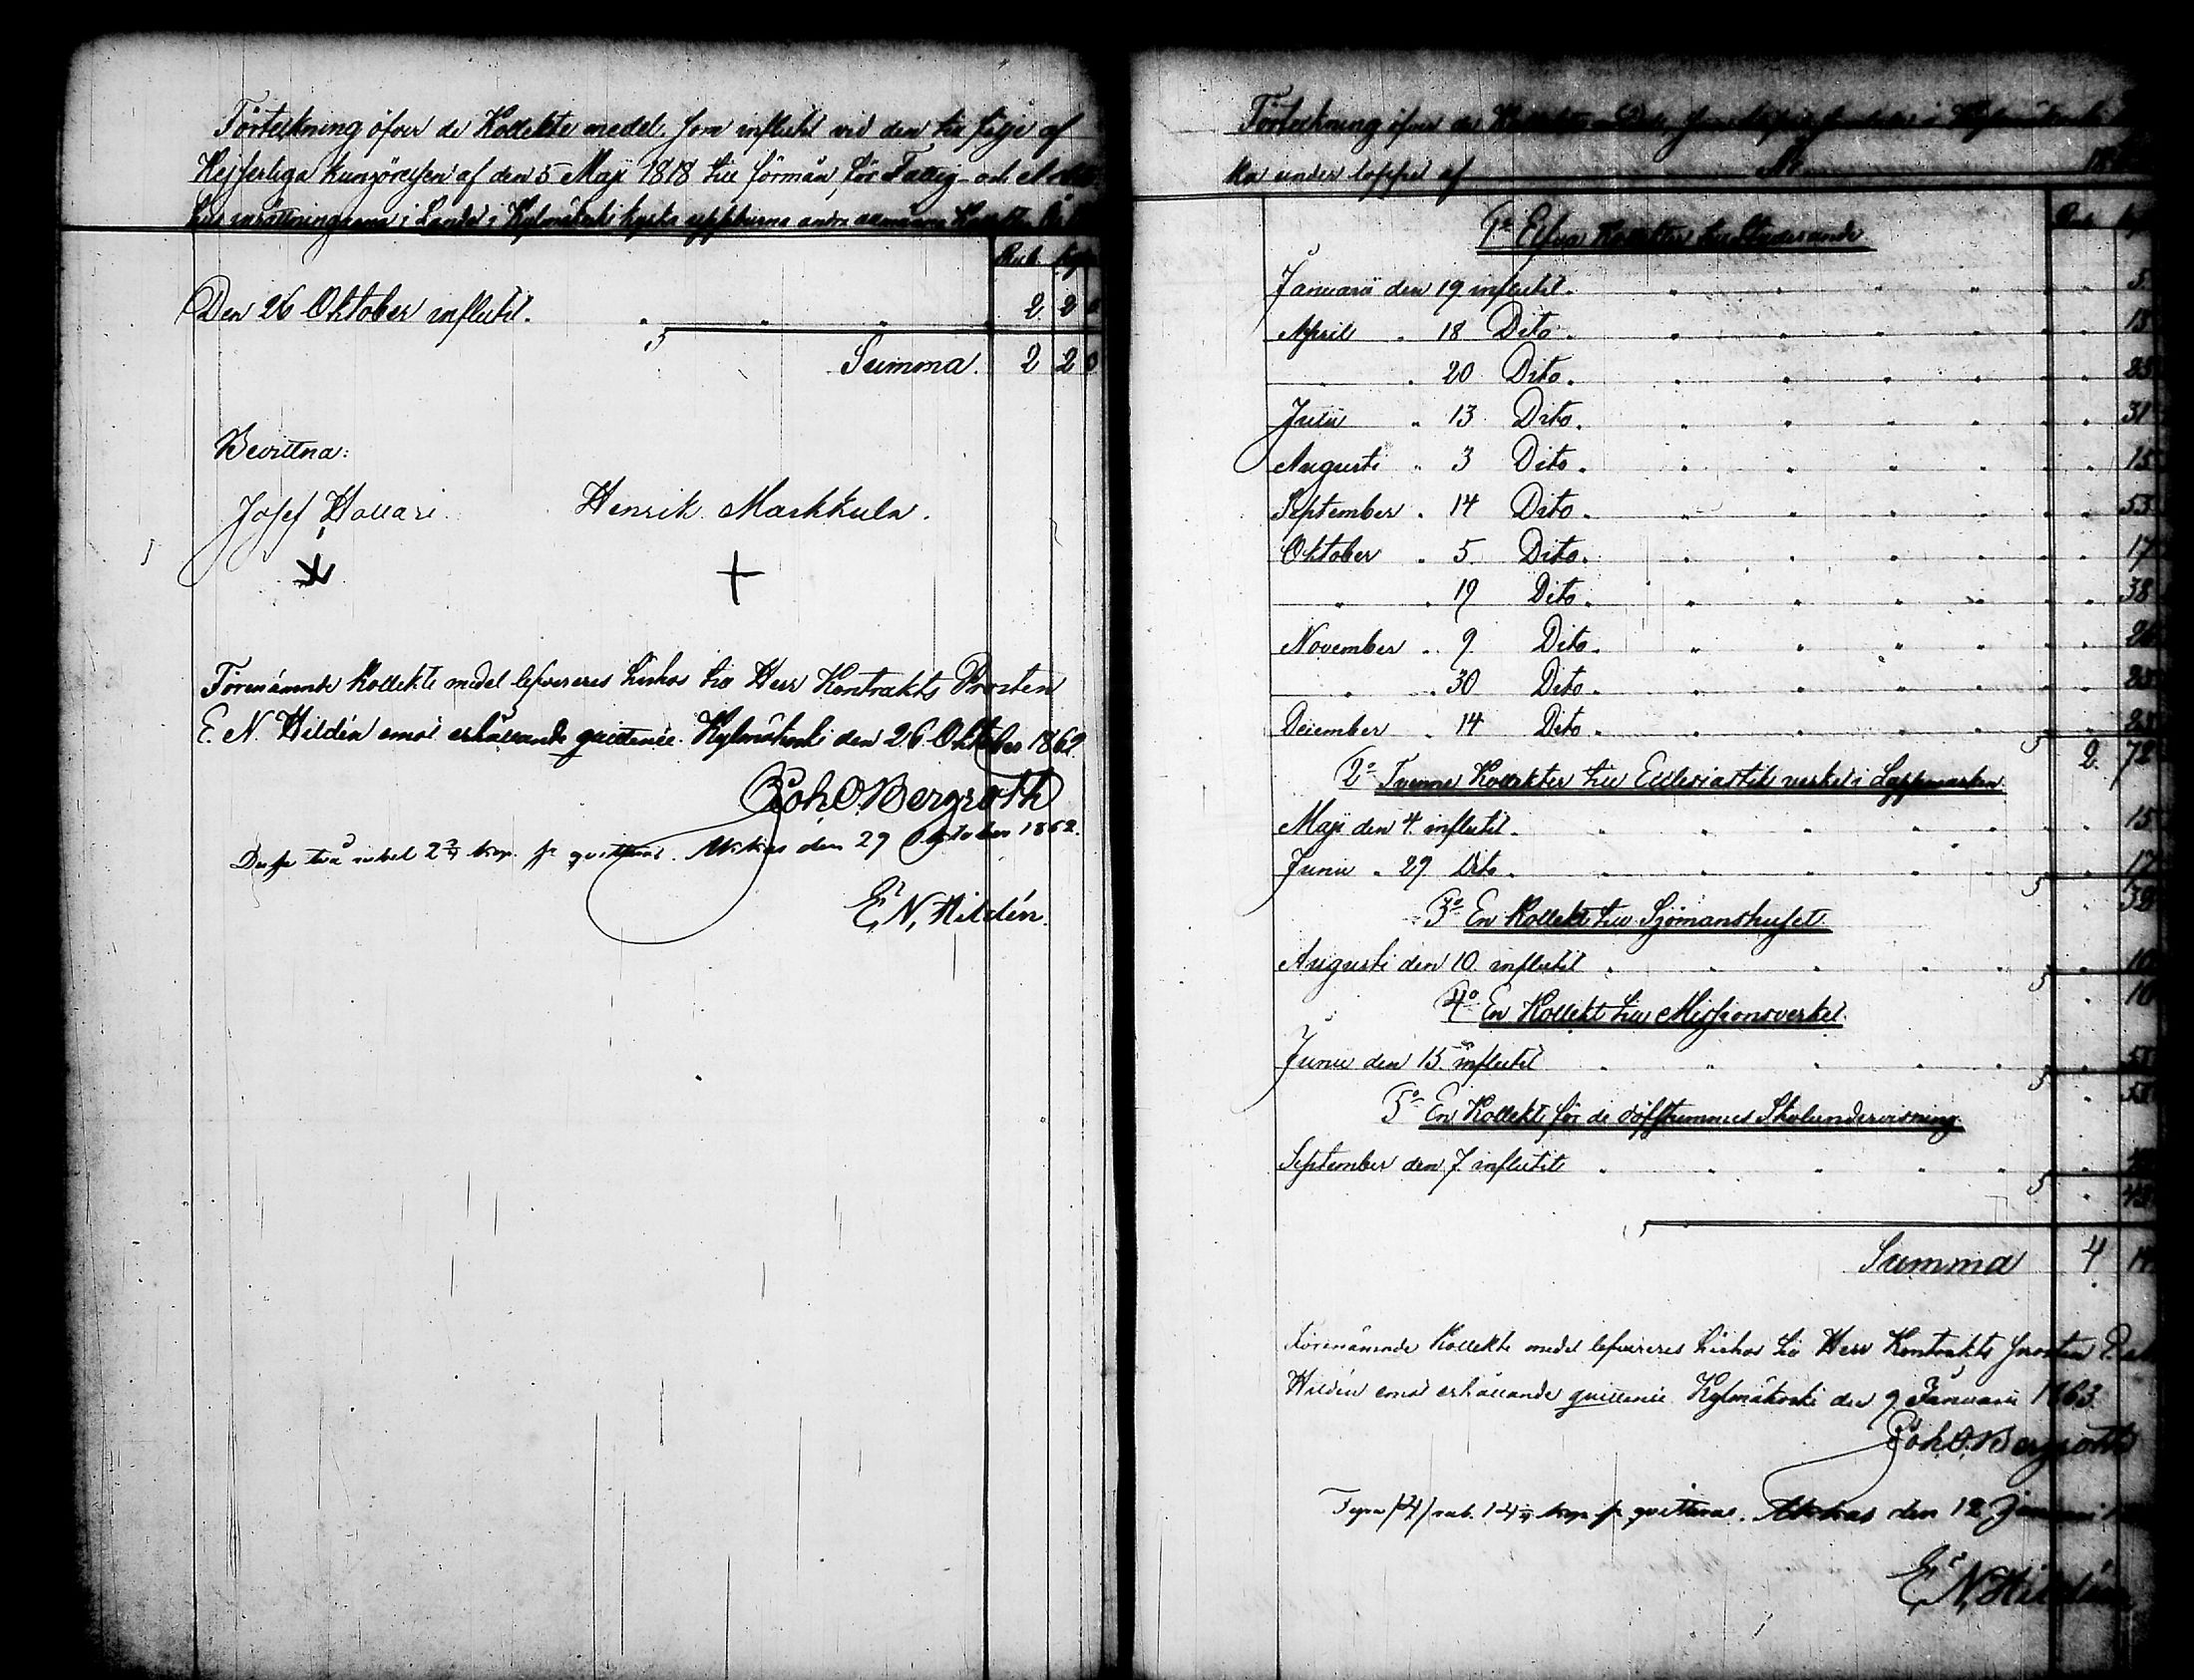 Förteckning öfver de Kollekte medel, som influtit vid den till följe af
Kejserliga kungörelsen af den 5 Maji 1818 till förmån för Fattig- och
inrättningarna i Landet i Kylmäkoski kyrka upptagna andra allmänna
Rub. Kop.
Den 26 Oktober influtit. 2 2
Summa. 2 2
Bevittna:
Josef Hallari. Henrik Markkula.
Förenämnde Kollekte medel lefvereras härhos till Herr Kontrakts Prosten
E. N. Hildén emot erhållande quittence. Kylmäkoski den 26 Oktober 1862.
Joh O Bergroth
Dessa två rubel 2 2/7 kop. sr qvitteras. Akkas den 29 Oktober 1862.
E. N. Hildén.
Förteckning öfver de
ka under loppet af
1o Elfva Kollekter till Studerande
Januarii den 19 influtit. 5
April 18 Dito. 15
20 Dito. 25
Julii 13 Dito. 31
Augusti 3 Dito. 15
September 14 Dito. 53
Oktober 5 Dito. 17
19 Dito. 38
November 9 Dito. 26
30 Dito. 25
December 14 Dito.
2. 72
2o Tvenne Kollekter till Ecclesiastik verket i Lappmarken
Maji den 4. influtit. 15
Junii 29 Dito. 17
32
3o En Kollekt till Sjömanshuset.
Augusti den 10. influtit 10
10
4o En Kollekt till Missionsverket.
Junii den 15. influtit
5o En Kollekt för de döfstummes Skolundervisning.
September den 7 influtit
Summa 4 14
Förenämnde Kollekte medel lefvereras härhos till Herr Kontrakts prosten
Hildén emot erhållande quittence Kylmäkoski den 9 Januarii 1863.
Joh O. Bergroth
Fyra /4/ rub. 14 kop. sr qvitteras. Akkas den 12 Januari
E. N. Hildén.